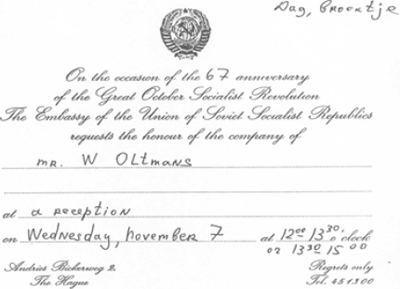 Dag, Broertje
On the occasion of the 67 anniversary
of the Great October Socialist Revolution
The Embassy of the Union of Soviet Socialist Republics
requests the honour of the company of
mr. W Oltmans
at a reception
on Wednesday, november 7 at 12⁰⁰ 13³⁰ o'clock
or 13³⁰ 15 00
Andries Bickerweg 2. Regrets only
The Hague Tel. 451300